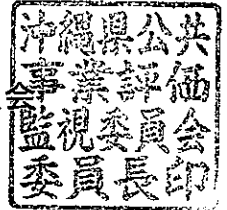 沖縄県公共
事業評価
会
監視委員会
委員長印